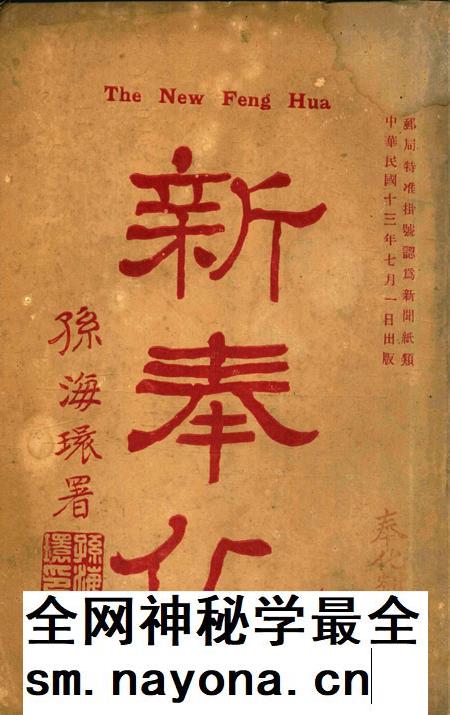 The New Feng Hua
郵局特准掛號認爲新聞紙類
中華民國十三年七月一日出版
新奉化
孫海環署
奉化
全网神秘学最全
sm.nayona.cn